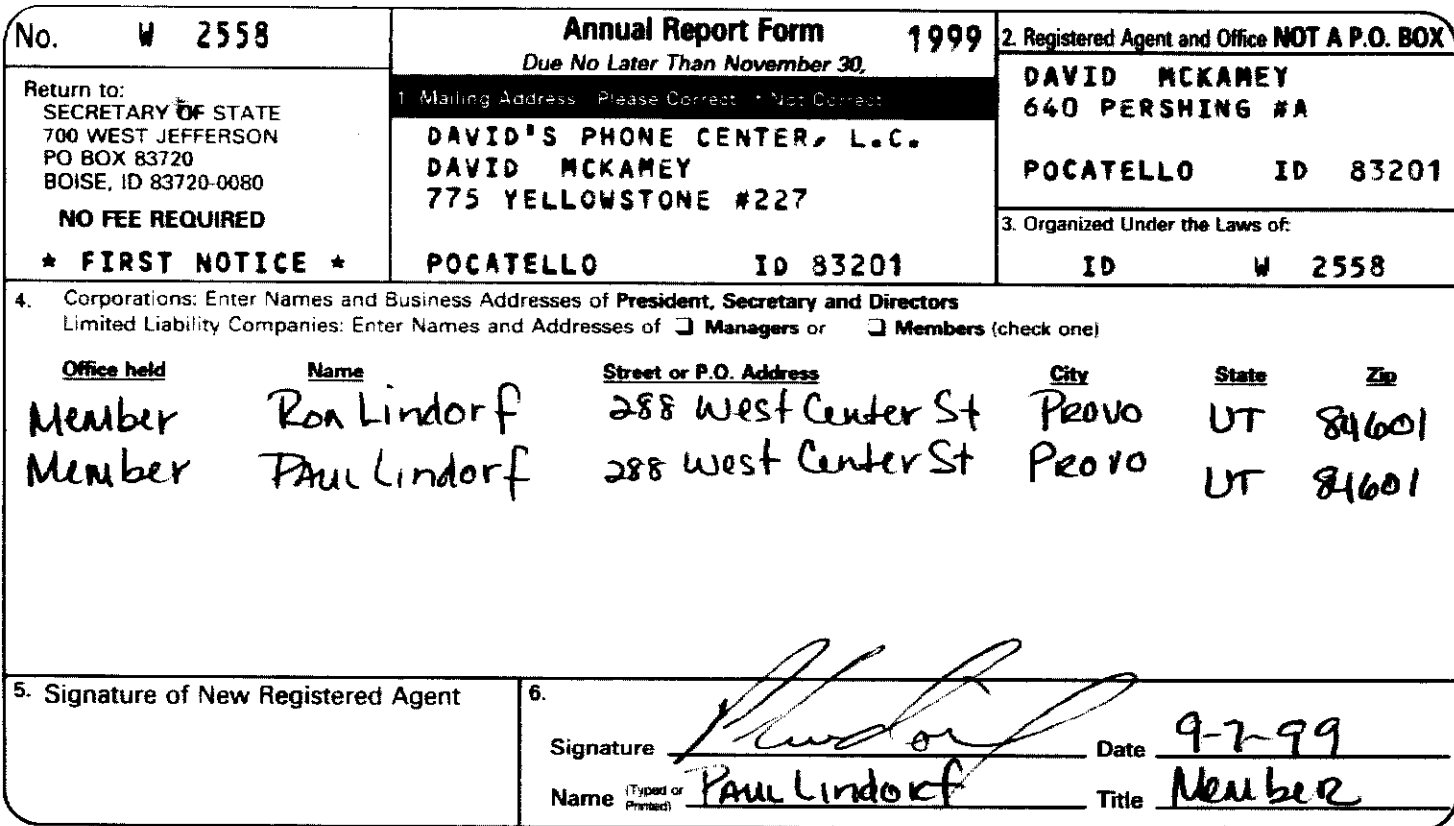 No. W 2558
Return to:
SECRETARY OF STATE
700 WEST JEFFERSON
PO BOX 83720
BOISE, ID 83720-0080
NO FEE REQUIRED
* FIRST NOTICE *
Annual Report Form 1999
Due No Later Than November 30,
1. Mailing Address Please Correct Not Correct
DAVID'S PHONE CENTER, L.C.
DAVID MCKAMEY
775 YELLOWSTONE #227
POCATELLO ID 83201
2. Registered Agent and Office NOT A P.O. BOX
DAVID MCKAMEY
640 PERSHING #A
POCATELLO ID 83201
3. Organized Under the Laws of:
ID W 2558
4. Corporations: Enter Names and Business Addresses of President, Secretary and Directors
Limited Liability Companies: Enter Names and Addresses of ❑ Managers or ❑ Members (check one)
Office held Name Street or P.O. Address City State Zip
Member Ron Lindorf 288 West Center St Provo UT 84601
Member Paul Lindorf 288 West Center St Provo UT 84601
5. Signature of New Registered Agent
6.
Signature Date 9-7-99
Name (Typed or Printed) Paul Lindorf Title Member